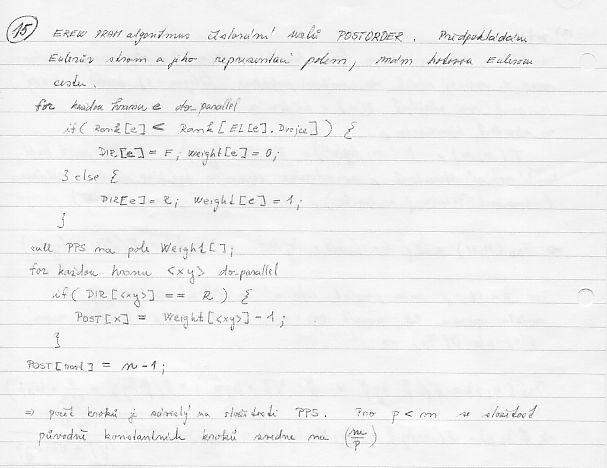 15 EREW PRAM algoritmus číslování uzlů POSTORDER. Předpokládám
Eulerův strom a jeho reprezentaci polem, mám hotovou Eulerovu
cestu.
for každou hranu e do parallel
if ( Rank[e] < Rank[ EL[e].Dvojce] ) {
DIR[e] = F; weight[e] = 0;
} else {
DIR[e] = R; weight[e] = 1;
}
call PPS na pole Weight[];
for každou hranu <xy> do parallel
if ( DIR[<xy>] == R ) {
POST[x] = Weight[<xy>] - 1;
}
POST[root] = n-1;
⇒ počet kroků je závislý na složitosti PPS. Pro p < n se složitost
původně konstantních kroků zvedne na (n/p)